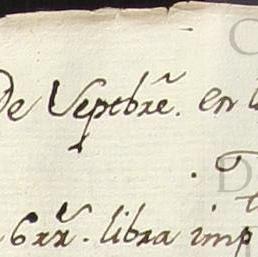 De Septbrẽ. en
6xx̃. libra imp